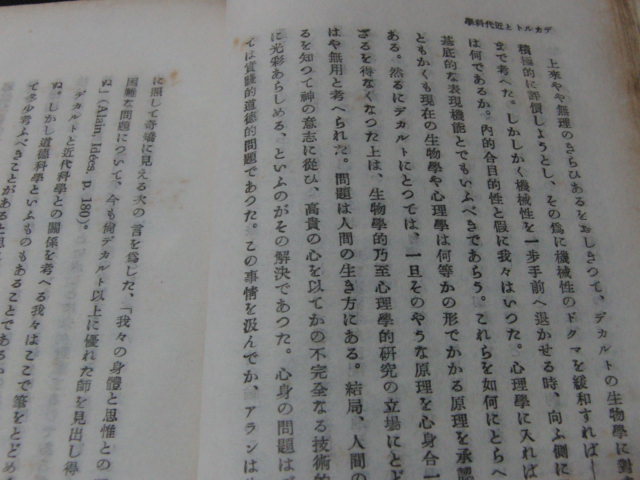 デカルトと近代科學
上來やや無理のきらひあるをおしきつて、デカルトの生物學に對
積極的に評價しようとし、その爲に機械性のドグマを緩和すれば――
まで考へた。しかしかく機械性を一歩手前へ退かせる時、向ふ側に
は何であるか。内的合目的性と假に我々はいつた。心理學に入れば
基底的な表現機能とでもいふべきであらう。これらを如何にとらへ
ともかくも現在の生物學や心理學は何等かの形でかかる原理を承認
ある。然るにデカルトにとつては、一旦そのやうな原理を心身合一
ざるを得なくなつた上は、生物學的乃至心理學的研究の立場にとど
はや無用と考へられた。問題は人間の生き方にある。結局、人間の
るを知つて神の意志に從ひ、高貴の心を以てかの不完全なる技術的
に光彩あらしめる、といふのがその解決であつた。心身の問題は
ては實踐的道德的問題であつた。この事情を汲んでか、アランは
に照して奇矯に見える次の言を爲した、「我々の身體と思惟との
困難な問題について、今も尙デカルト以上に優れた師を見出し得
ぬ」(Alain, Idées, p. 180)。
デカルトと近代科學との關係を考へる我々はここで筆をとどめ
ぬ。しかし道德科學といふものもあることであるか
て多少考ふべきことがあると思